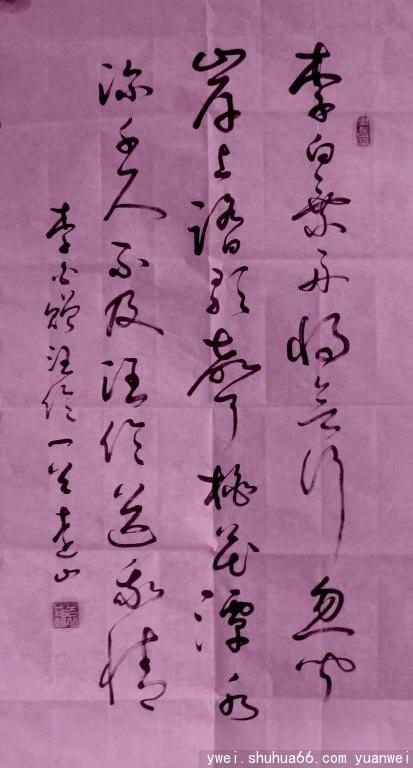 李白乘舟将欲行忽闻
岸上踏歌声桃花潭水
深千尺不及汪伦送我情
李白赠汪伦一首
ywei.shuhua66.com yuanwei